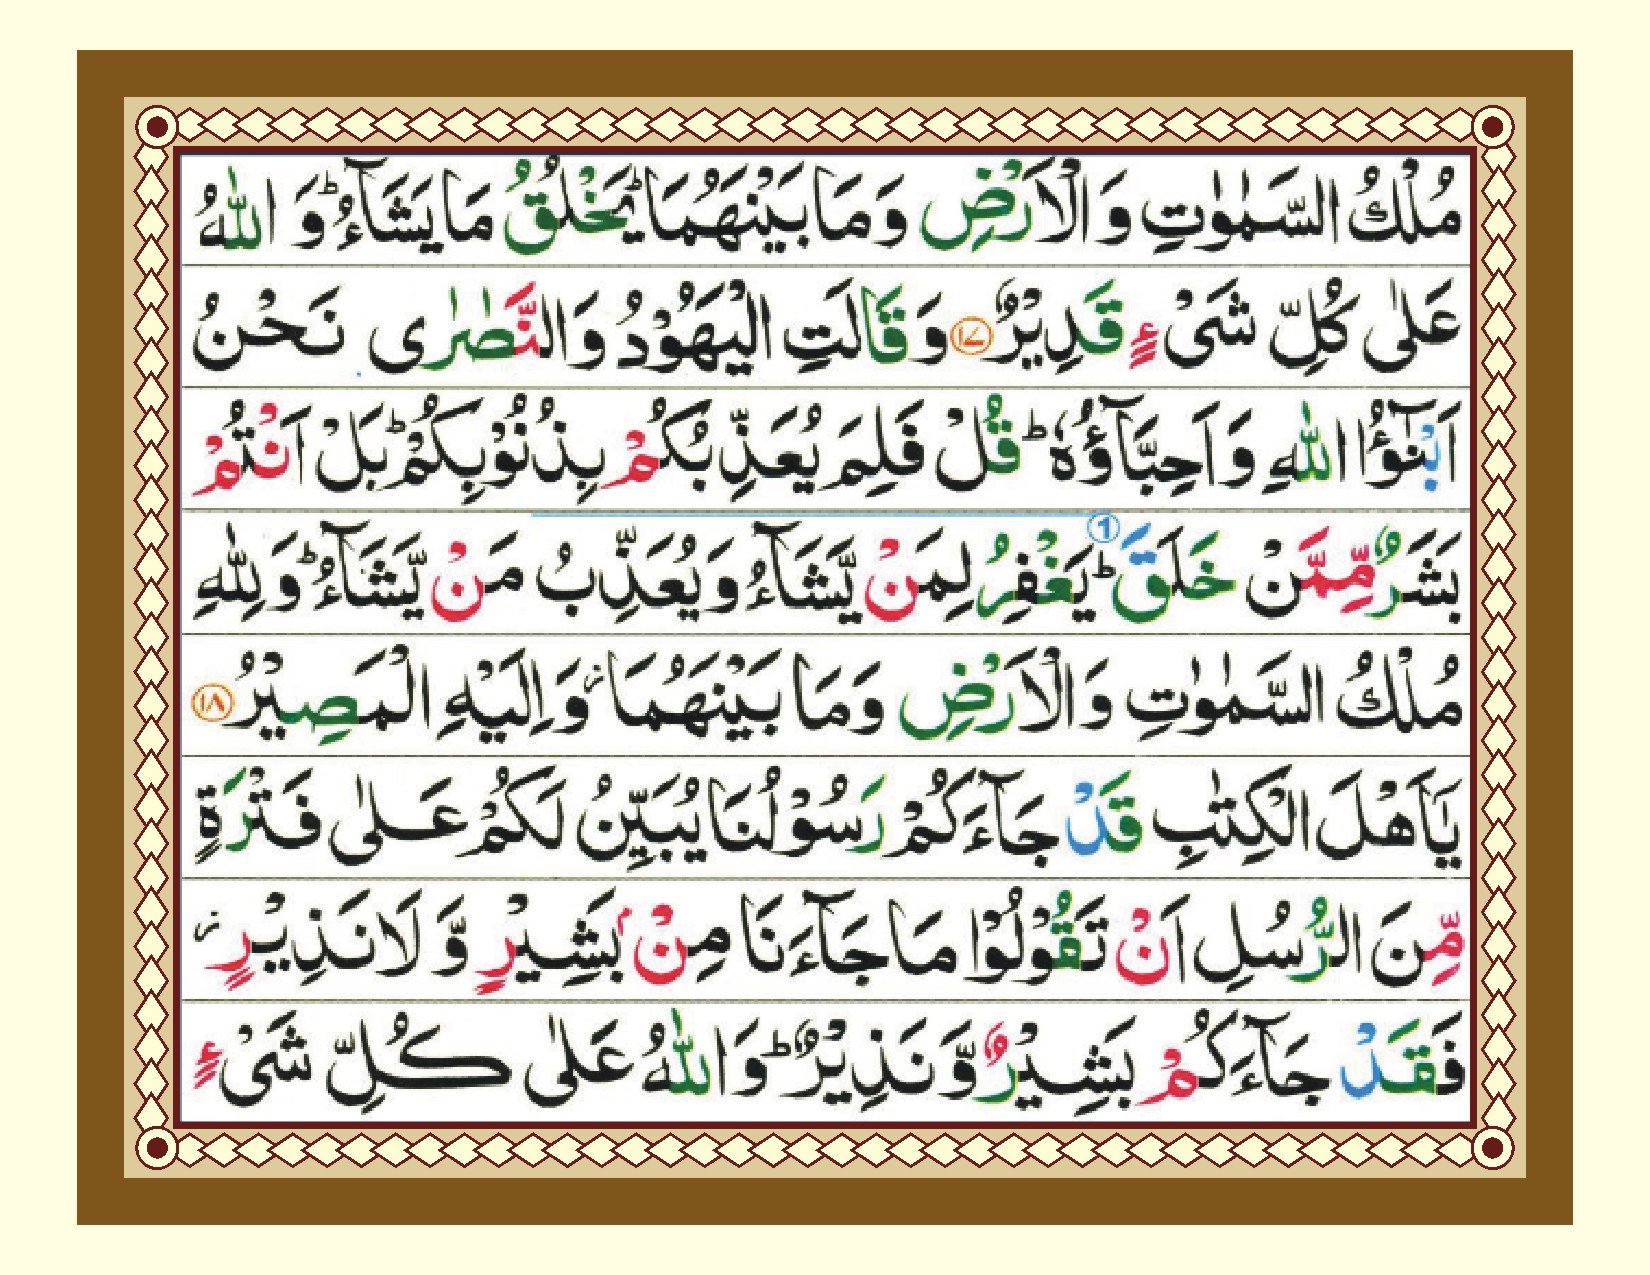 مُلْكُ السَّمٰوٰتِ وَ الْاَرْضِ وَ مَا بَيْنَهُمَا ؕ يَخْلُقُ مَا يَشَآءُ ؕ وَ اللّٰهُ
عَلٰى كُلِّ شَىْءٍ قَدِيْرٌ ﴿۱۷﴾ وَ قَالَتِ الْيَهُوْدُ وَ النَّصٰرٰى نَحْنُ
اَبْنٰٓؤُا اللّٰهِ وَ اَحِبَّآؤُهٗ ؕ قُلْ فَلِمَ يُعَذِّبُكُمْ بِذُنُوْبِكُمْ ؕ بَلْ اَنْتُمْ
بَشَرٌ مِّمَّنْ خَلَقَ ؕ ① يَغْفِرُ لِمَنْ يَّشَآءُ وَ يُعَذِّبُ مَنْ يَّشَآءُ ؕ وَ لِلّٰهِ
مُلْكُ السَّمٰوٰتِ وَ الْاَرْضِ وَ مَا بَيْنَهُمَا ؗ وَ اِلَيْهِ الْمَصِيْرُ ﴿۱۸﴾
يٰۤاَهْلَ الْكِتٰبِ قَدْ جَآءَكُمْ رَسُوْلُنَا يُبَيِّنُ لَكُمْ عَلٰى فَتْرَةٍ
مِّنَ الرُّسُلِ اَنْ تَقُوْلُوْا مَا جَآءَنَا مِنْۢ بَشِيْرٍ وَّ لَا نَذِيْرٍ ؗ
فَقَدْ جَآءَكُمْ بَشِيْرٌ وَّ نَذِيْرٌ ؕ وَ اللّٰهُ عَلٰى كُلِّ شَىْءٍ